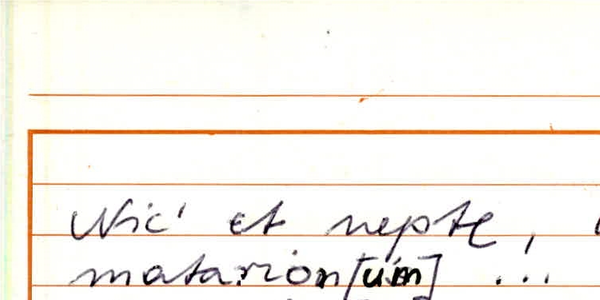 Nić et neptę,
matarión[um] ...